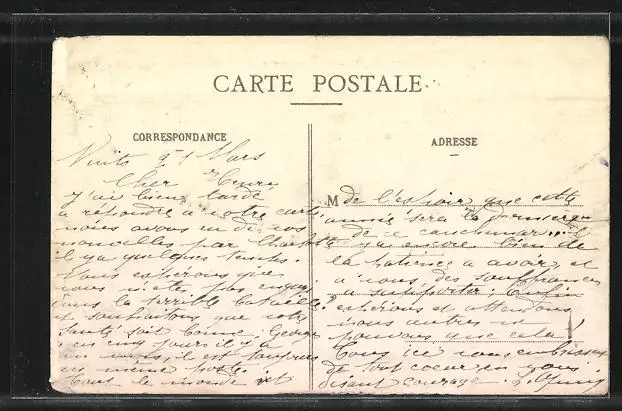 CARTE POSTALE
CORRESPONDANCE
Nuits 1 Mars
Cher Henri
J'ai bien tardé
à répondre à votre carte
nous avons eu de vos
nouvelles par Charlotte
il y a quelques temps.
Nous espérons que
vous n'êtes pas engagé
dans la terrible bataille
et souhaitons que votre
santé soit bonne. Georges
en cinq jours il y a
un mois, il est toujours
au même poste.
Tout le monde est
ADRESSE
M
de l'espoir que cette
année sera la dernière
de ce cauchemar
y a encore bien de
la patience à avoir et
à vous des souffrances
à supporter. Enfin
espérons et attendons
nous autres ne
pouvons que cela!
Tous ici vous embrassent
de tout coeur en vous
disant courage.